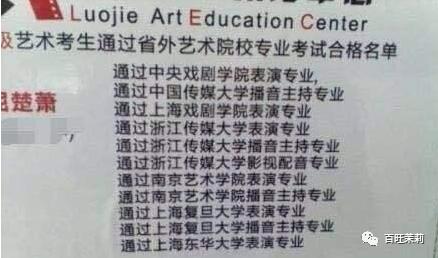 Luojie Art Education Center
级艺术考生通过省外艺术院校专业考试合格名单
屈楚萧
通过中央戏剧学院表演专业,
通过中国传媒大学播音主持专业
通过上海戏剧学院表演专业
通过浙江传媒大学表演专业
通过浙江传媒大学播音主持专业
通过浙江传媒大学影视配音专业
通过南京艺术学院表演专业
通过南京艺术学院播音主持专业
通过上海复旦大学表演专业
通过上海复旦大学播音主持专业
通过上海东华大学表演专业
百旺茉莉